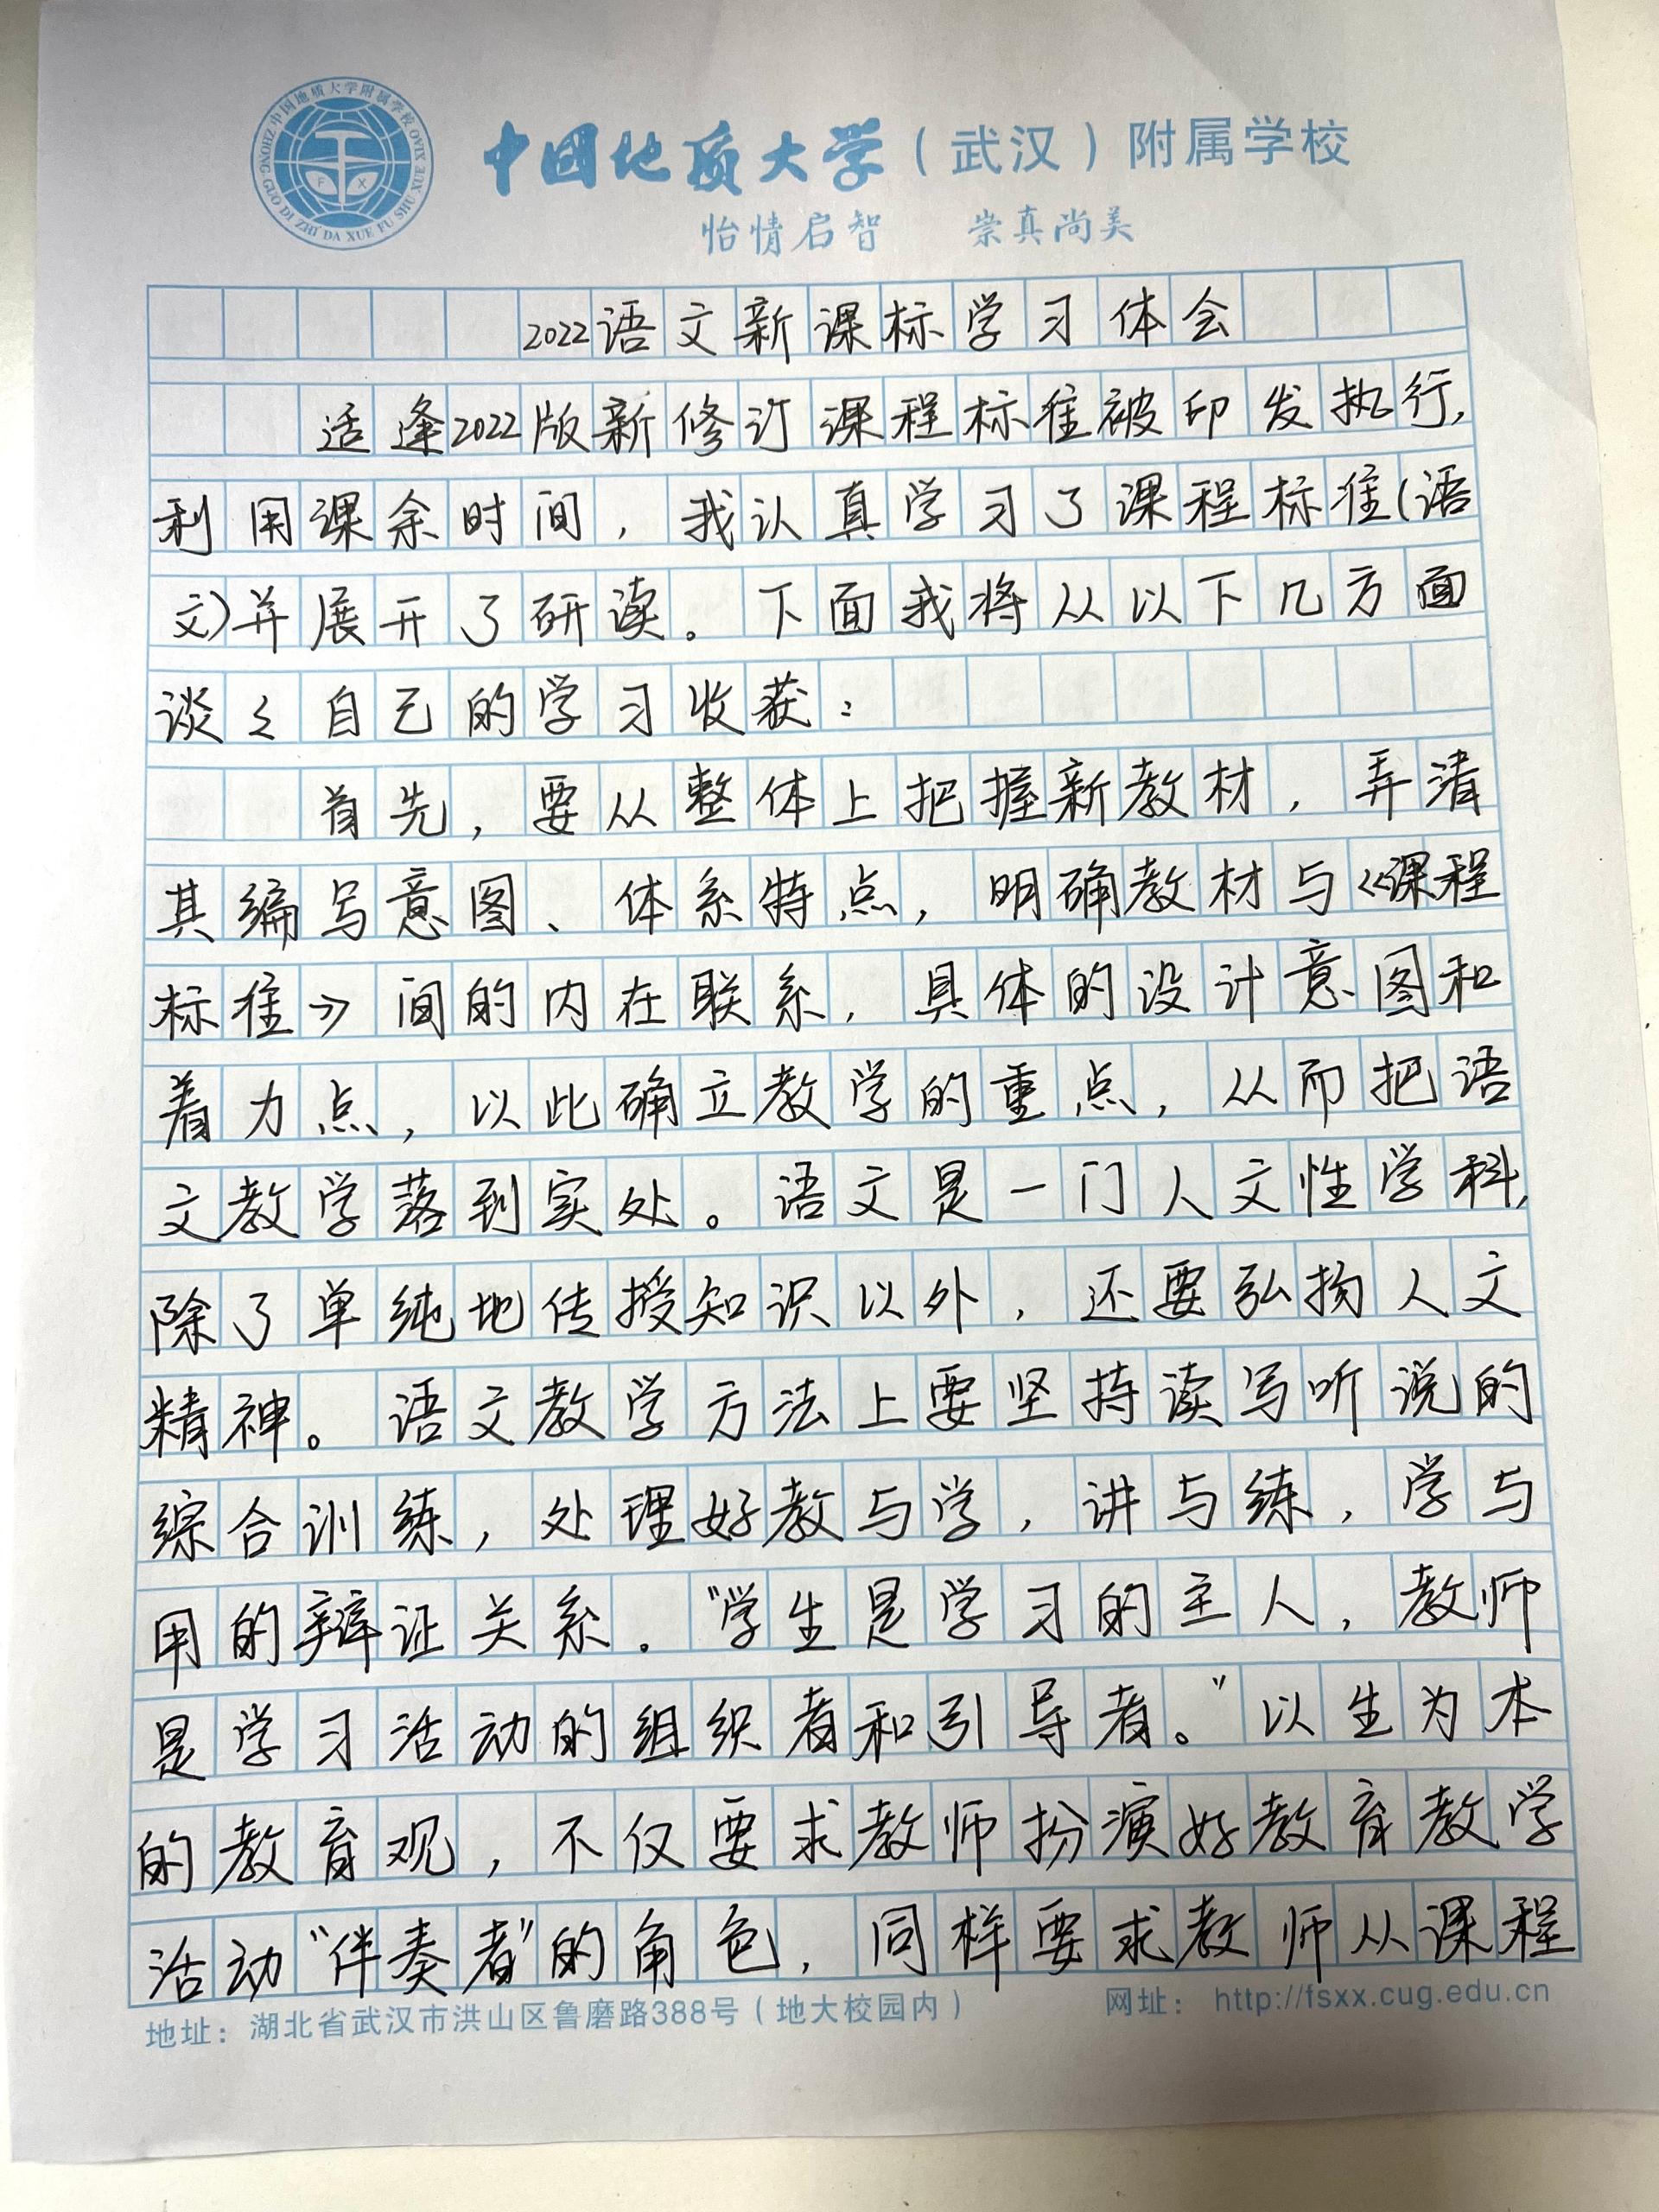 中国地质大学附属学校
ZHONG GUO DI ZHI DA XUE FU SHU XUE XIAO
F X
中国地质大学（武汉）附属学校
怡情启智 崇真尚美
2022语文新课标学习体会
适逢2022版新修订课程标准被印发执行,
利用课余时间，我认真学习了课程标准(语
文)并展开了研读。下面我将从以下几方面
谈々自己的学习收获：
首先，要从整体上把握新教材，弄清
其编写意图、体系特点，明确教材与《课程
标准》间的内在联系，具体的设计意图和
着力点，以此确立教学的重点，从而把语
文教学落到实处。语文是一门人文性学科,
除了单纯地传授知识以外，还要弘扬人文
精神。语文教学方法上要坚持读写听说的
综合训练，处理好教与学，讲与练，学与
用的辩证关系。“学生是学习的主人，教师
是学习活动的组织者和引导者。”以生为本
的教育观，不仅要求教师扮演好教育教学
活动“伴奏者”的角色，同样要求教师从课程
地址：湖北省武汉市洪山区鲁磨路388号（地大校园内） 网址：http://fsxx.cug.edu.cn